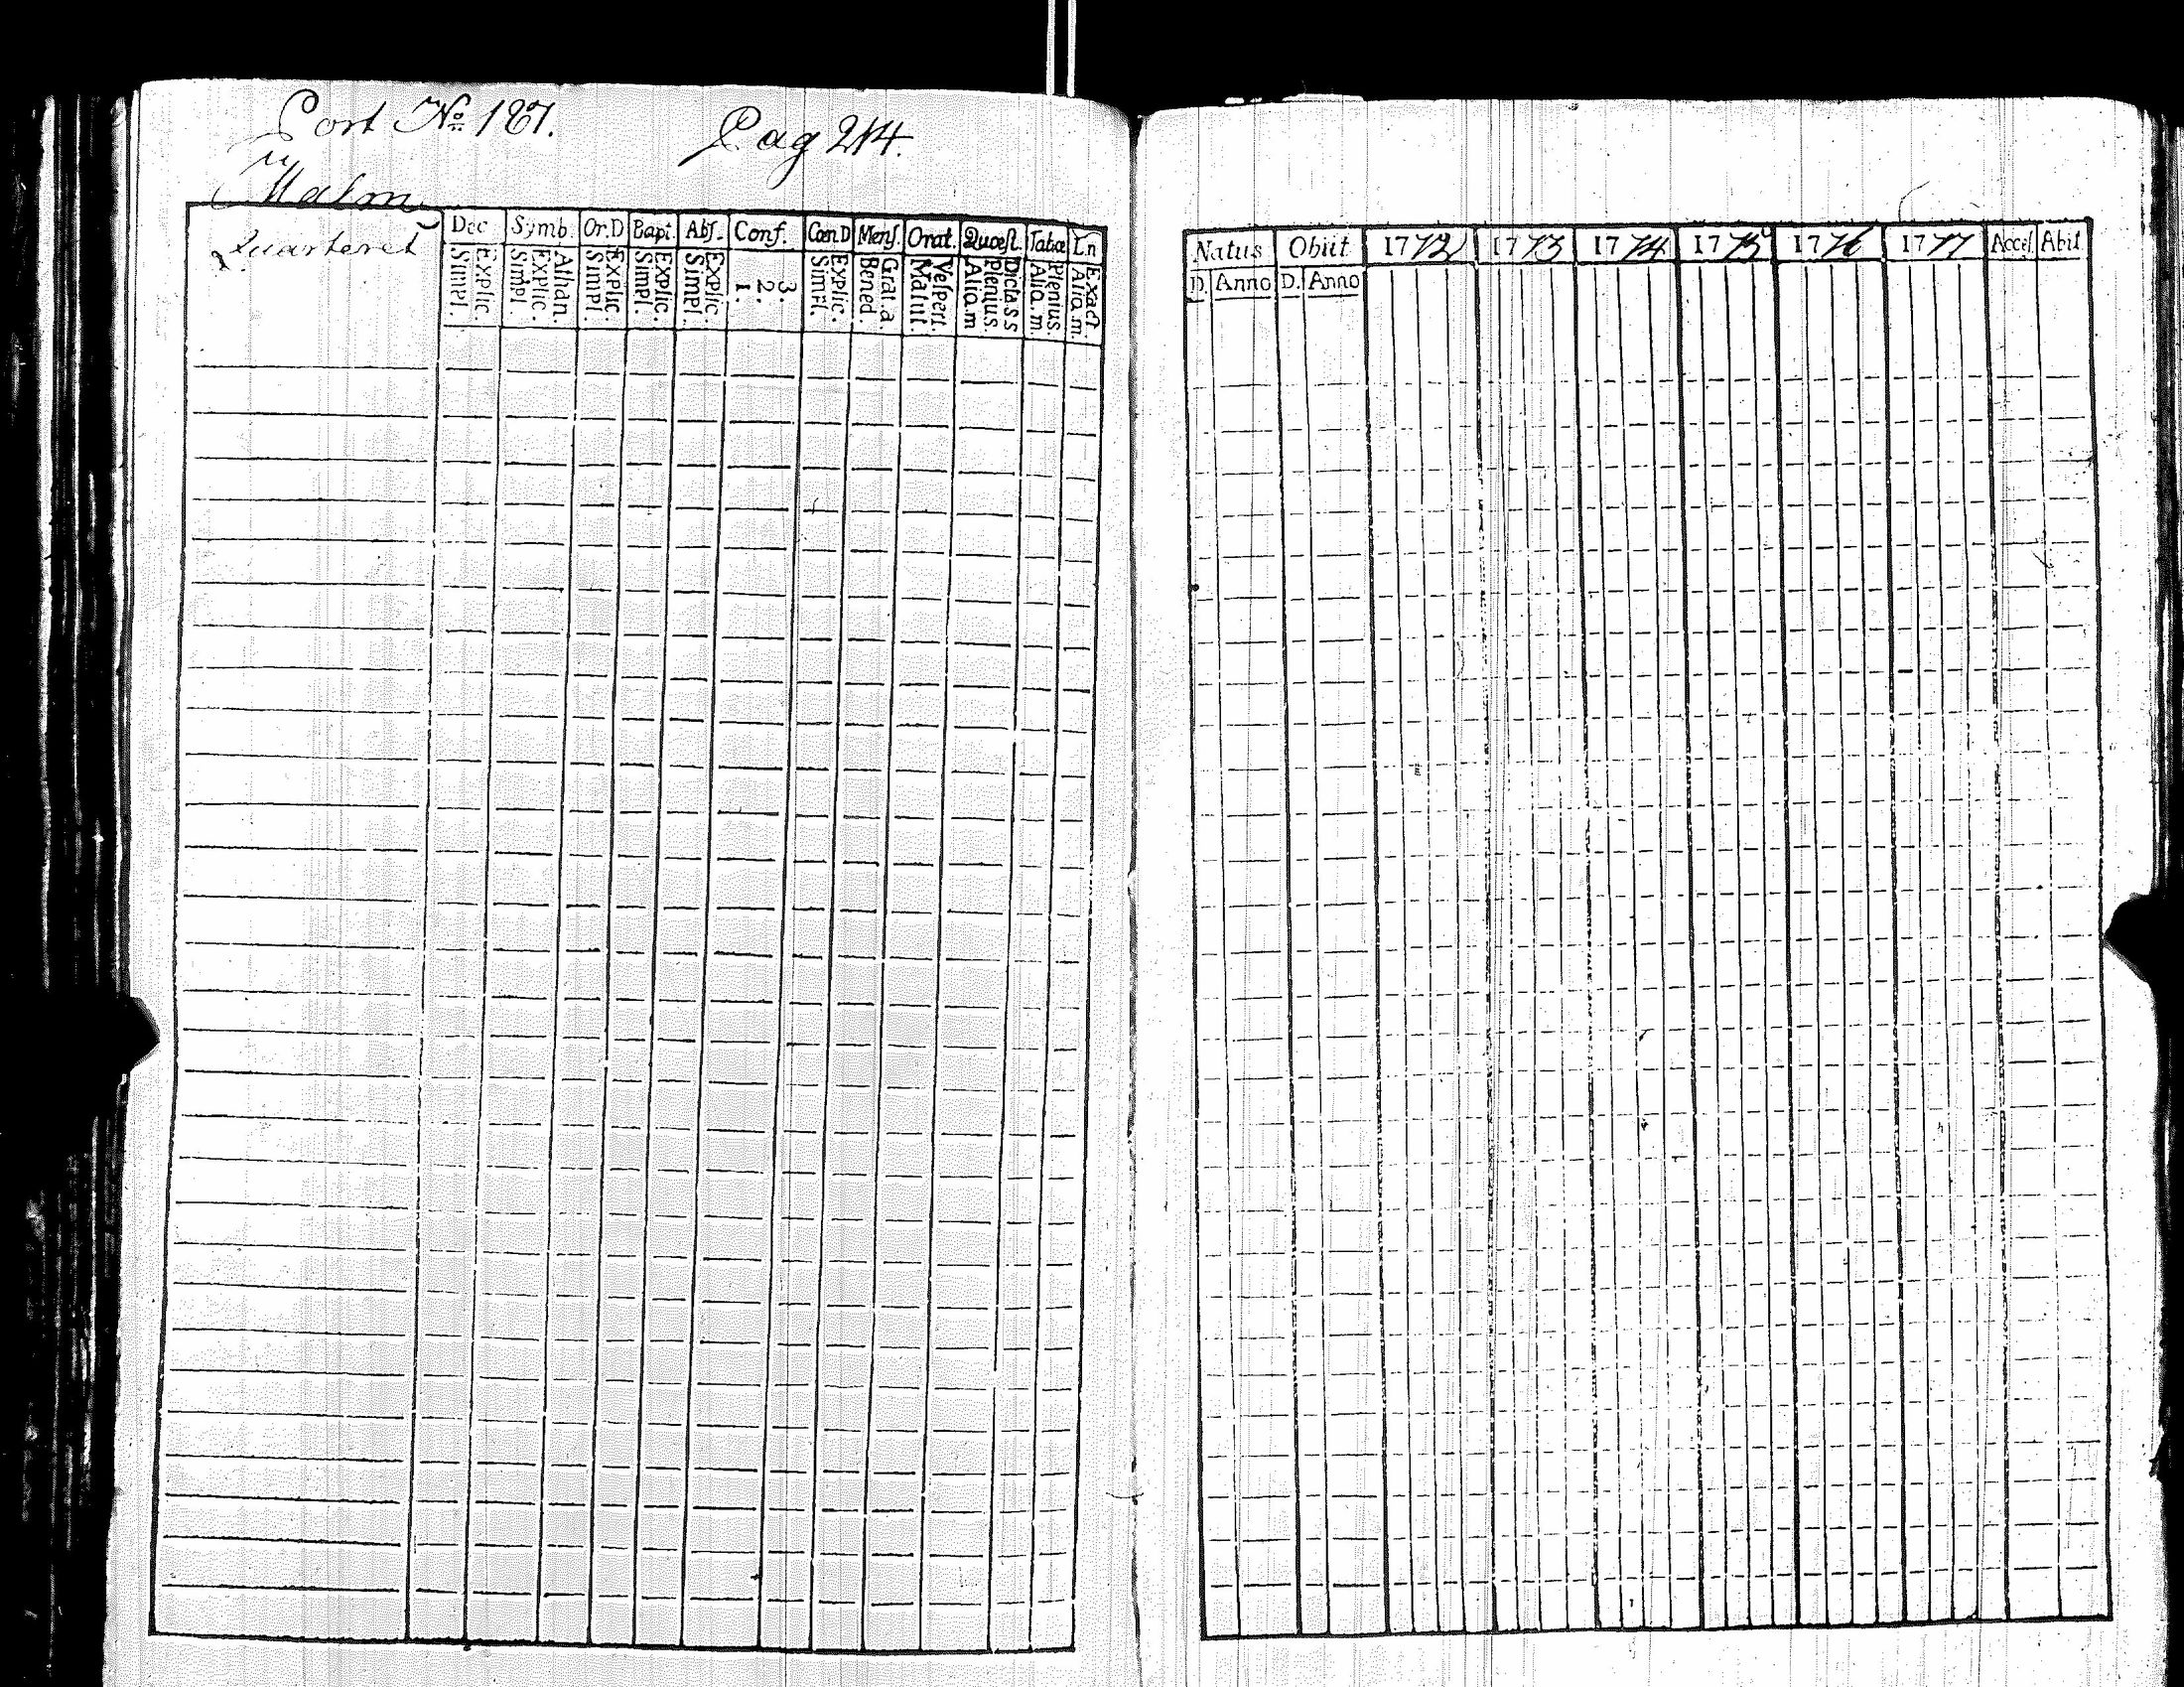 Port No 187. Pag 214.
Malm
Quarteret
Dec Symb. Or.D Bapt. Abs. Conf. Cœn D Mens. Orat. Quæst. Tabæ Ln
Simpl. Explic. Simpl. Explic. Athan. Simpl. Explic. Simpl. Explic. Simpl. Explic. 1. 2. 3. Simpl. Explic. Bened. Grat. a. Matut. Vespert. Alia. m Plenius. Dicta. s s Alia. m. Plenius. Alia. m. Exact.
Natus Obiit 1772 1773 1774 1775 1776 1777 Acces. Abit
D. Anno D. Anno